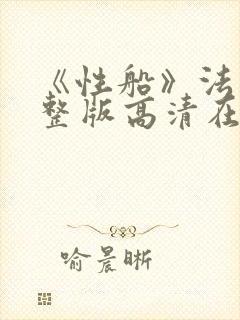 《性船》法
整版高清在
喻晨晰